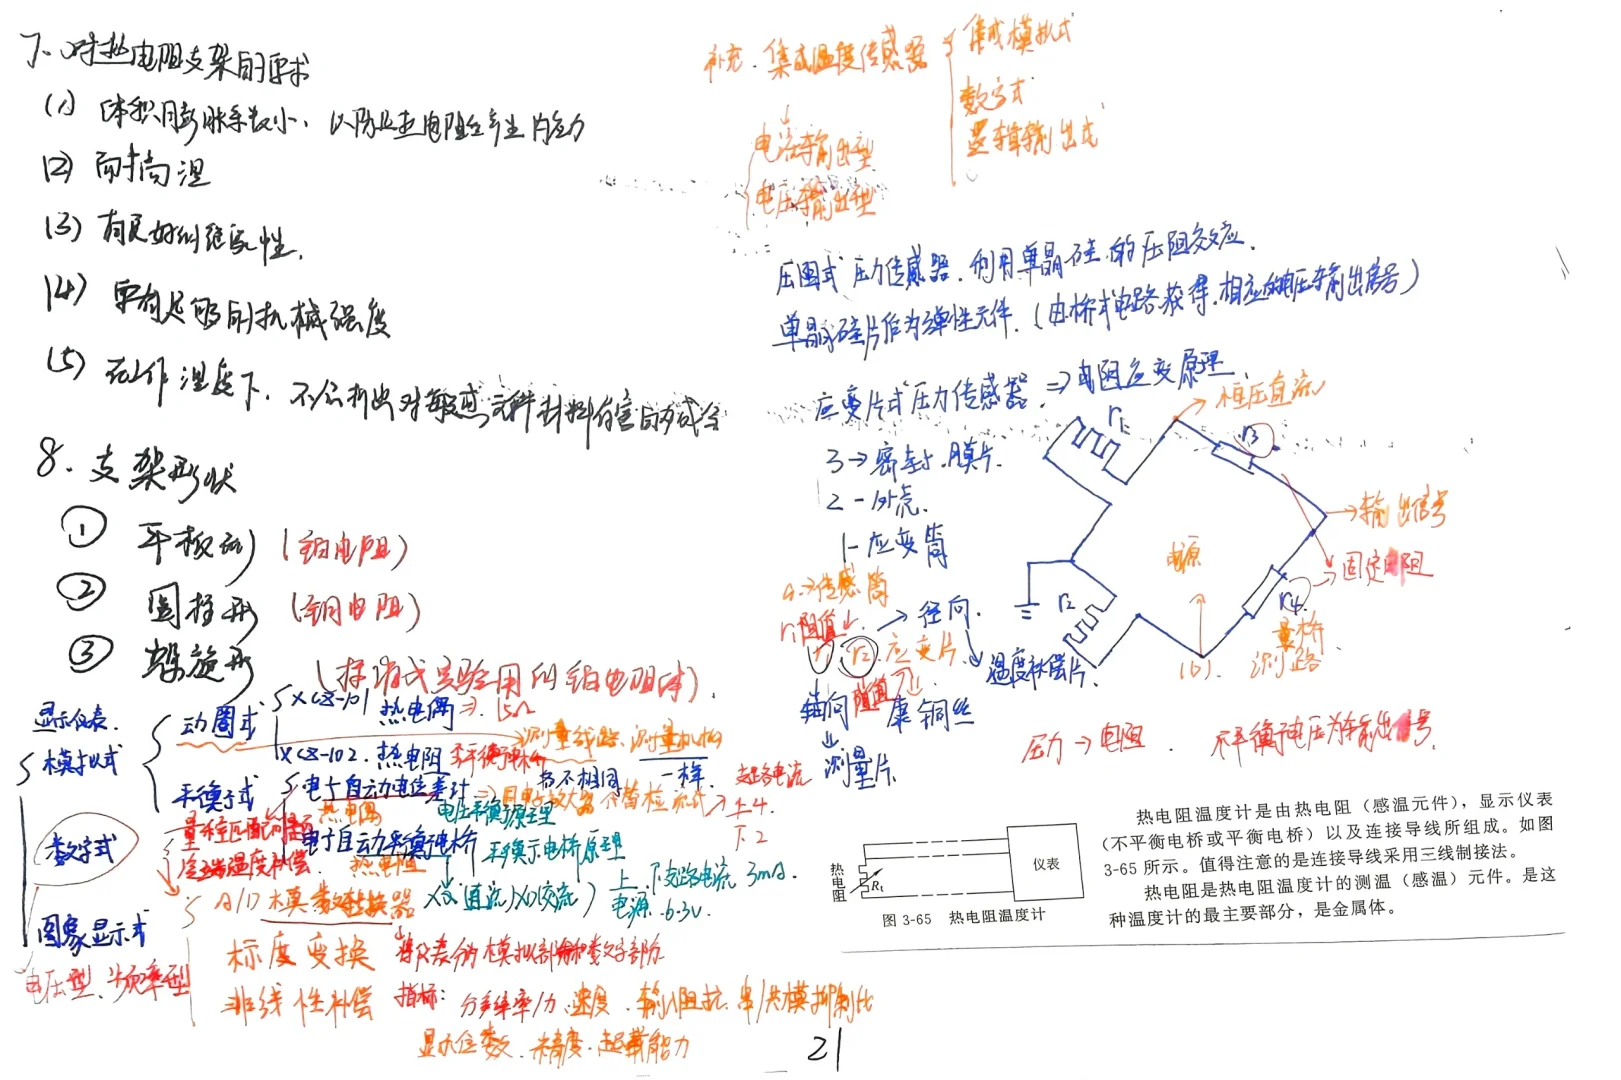 7、对热电阻支架的要求
(1) 体积膨胀系数小、以防止热电阻产生内应力
(2) 耐高温
(3) 有良好的绝缘性.
(4) 要有足够的机械强度
(5) 在工作温度下、不会析出对敏感元件材料有害的成分
8. 支架形状
① 平板形 (铂电阻)
② 圆柱形 (铜电阻)
③ 螺旋形 (标准或实验用的铂电阻体).
显示仪表.
模拟式
动圈式
XCZ-101 热电偶 ⇒ 15Ω
测量线路、测量机构
XCZ-102. 热电阻 不平衡电桥
均不相同 一样
平衡式
电子自动电位差计 ⇒ 用电子放大器代替检流式
热电偶 电压平衡原理
支路电流
上4
下2
电子自动平衡电桥
热电阻 平衡电桥原理
上、下支路电流 3mA.
电源 6.3V.
数字式
量程匹配问题
冷端温度补偿
A/D 模数转换器
XQ(直流) XD(交流)
图象显示式
电压型、频率型
标度变换
将仪表分为模拟部分和数字部分
非线性补偿
指标: 分辨率/力、速度、输入阻抗、串/共模抑制比
显示位数、精度、超载能力
补充. 集成温度传感器
集成模拟式
数字式
逻辑输出式
电流输出型
电压输出型
压阻式压力传感器. 利用单晶硅的压阻效应.
单晶硅片作为弹性元件. (由桥式电路获得.相应的电压输出信号)
应变片式压力传感器. ⇒ 电阻应变原理.
3 → 密封膜片.
2 - 外壳.
1 - 应变筒
传感筒
r1阻值↓
r2 应变片
→ 径向.
温度补偿片.
轴向 阻值
康铜丝
测量片.
r1
恒压直流
r3
输出信号
电源
固定电阻
r2
r4
(b)
测量桥路
压力 → 电阻 . 不平衡电压为输出信号.
热电阻温度计是由热电阻（感温元件），显示仪表
（不平衡电桥或平衡电桥）以及连接导线所组成。如图
3-65 所示。值得注意的是连接导线采用三线制接法。
热电阻是热电阻温度计的测温（感温）元件。是这
种温度计的最主要部分，是金属体。
热电阻
Rt
仪表
图 3-65 热电阻温度计
21